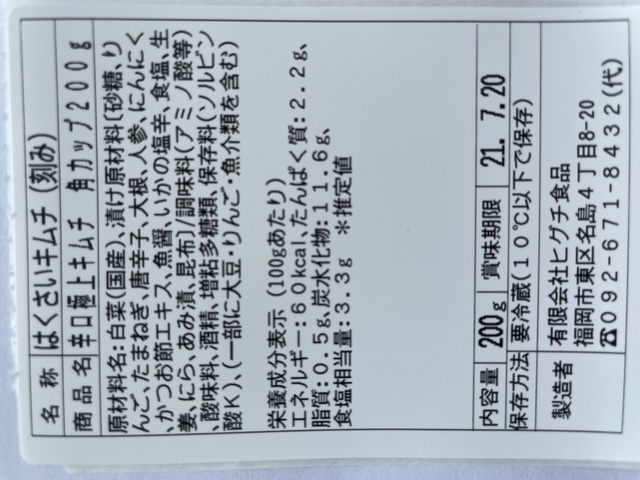 名称 はくさいキムチ（刻み）
商品名 辛口極上キムチ 角カップ２００ｇ
原材料名：白菜（国産）、漬け原材料［砂糖、り
んご、たまねぎ、唐辛子、大根、人参、にんにく
、かつお節エキス、魚醤、いかの塩辛、食塩、生
姜、にら、あみ漬、昆布］/調味料（アミノ酸等）
、酸味料、酒精、増粘多糖類、保存料（ソルビン
酸Ｋ）、（一部に大豆・りんご・魚介類を含む）
栄養成分表示（100gあたり）
エネルギー：６０kcal、たんぱく質：２.２g、
脂質：０.５g、炭水化物：１１.６g、
食塩相当量：３.３g ＊推定値
内容量 200g 賞味期限 21. 7.20
保存方法 要冷蔵（１０℃以下で保存）
製造者 有限会社ヒグチ食品
福岡市東区名島４丁目8-20
☎０９２-６７１-８４３２（代）